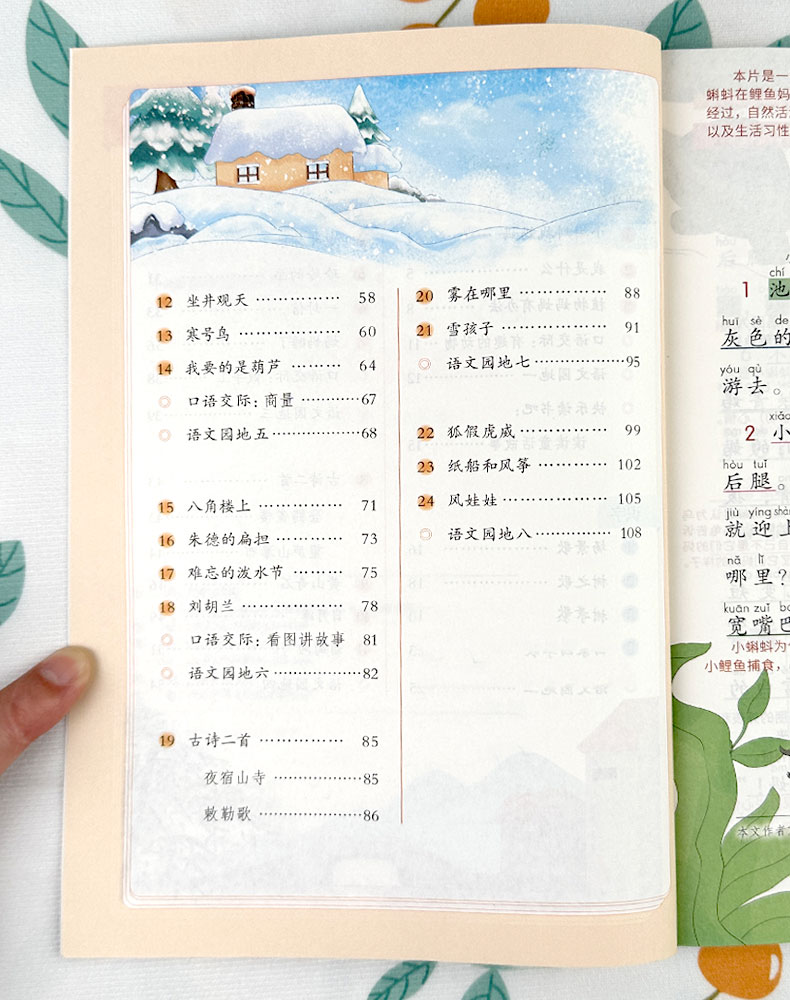 12 坐井观天 …………… 58
13 寒号鸟 …………… 60
14 我要的是葫芦 ……… 64
◎ 口语交际：商量 ………… 67
◎ 语文园地五 …………… 68
15 八角楼上 …………… 71
16 朱德的扁担 ………… 73
17 难忘的泼水节 ……… 75
18 刘胡兰 ……………… 78
◎ 口语交际：看图讲故事 81
◎ 语文园地六 …………… 82
19 古诗二首 …………… 85
夜宿山寺 …………… 85
敕勒歌 ……………… 86
20 雾在哪里 …………… 88
21 雪孩子 ……………… 91
◎ 语文园地七 …………… 95
22 狐假虎威 …………… 99
23 纸船和风筝 ………… 102
24 风娃娃 ……………… 105
◎ 语文园地八 ………… 108
本片是一
蝌蚪在鲤鱼妈
经过，自然活
以及生活习性
chí
1 池
huī sè de
灰色的
yóu qù
游去。
xiǎo
2 小
hòu tuǐ
后腿。
jiù yíng shàng
就迎上
nǎ lǐ
哪里？
kuān zuǐ bā
宽嘴巴
小蝌蚪为
小鲤鱼捕食，
本文作者